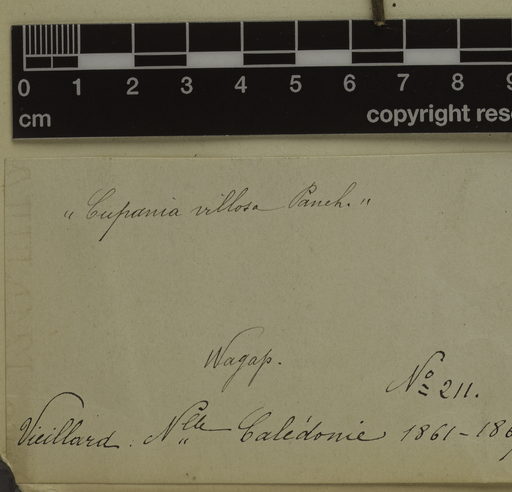 0 1 2 3 4 5 6 7 8 9
cm copyright rese
" Cupania villosa Panch. "
Wagap.
No 211.
Vieillard. Nlle Calédonie 1861-186